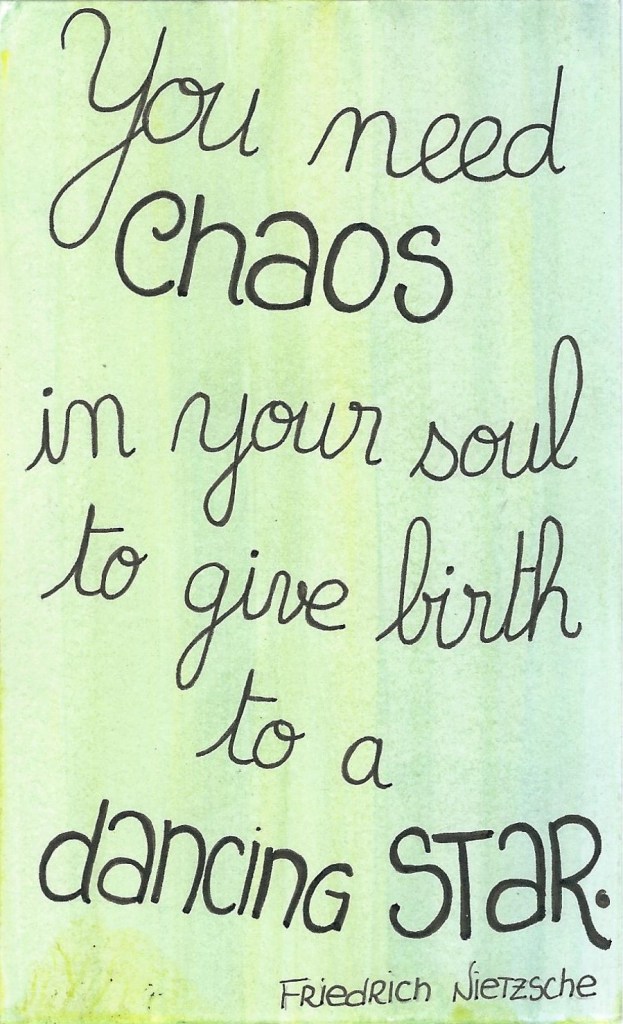 You need
chaos
in your soul
to give birth
to a
dancing STAR.
Friedrich Nietzsche